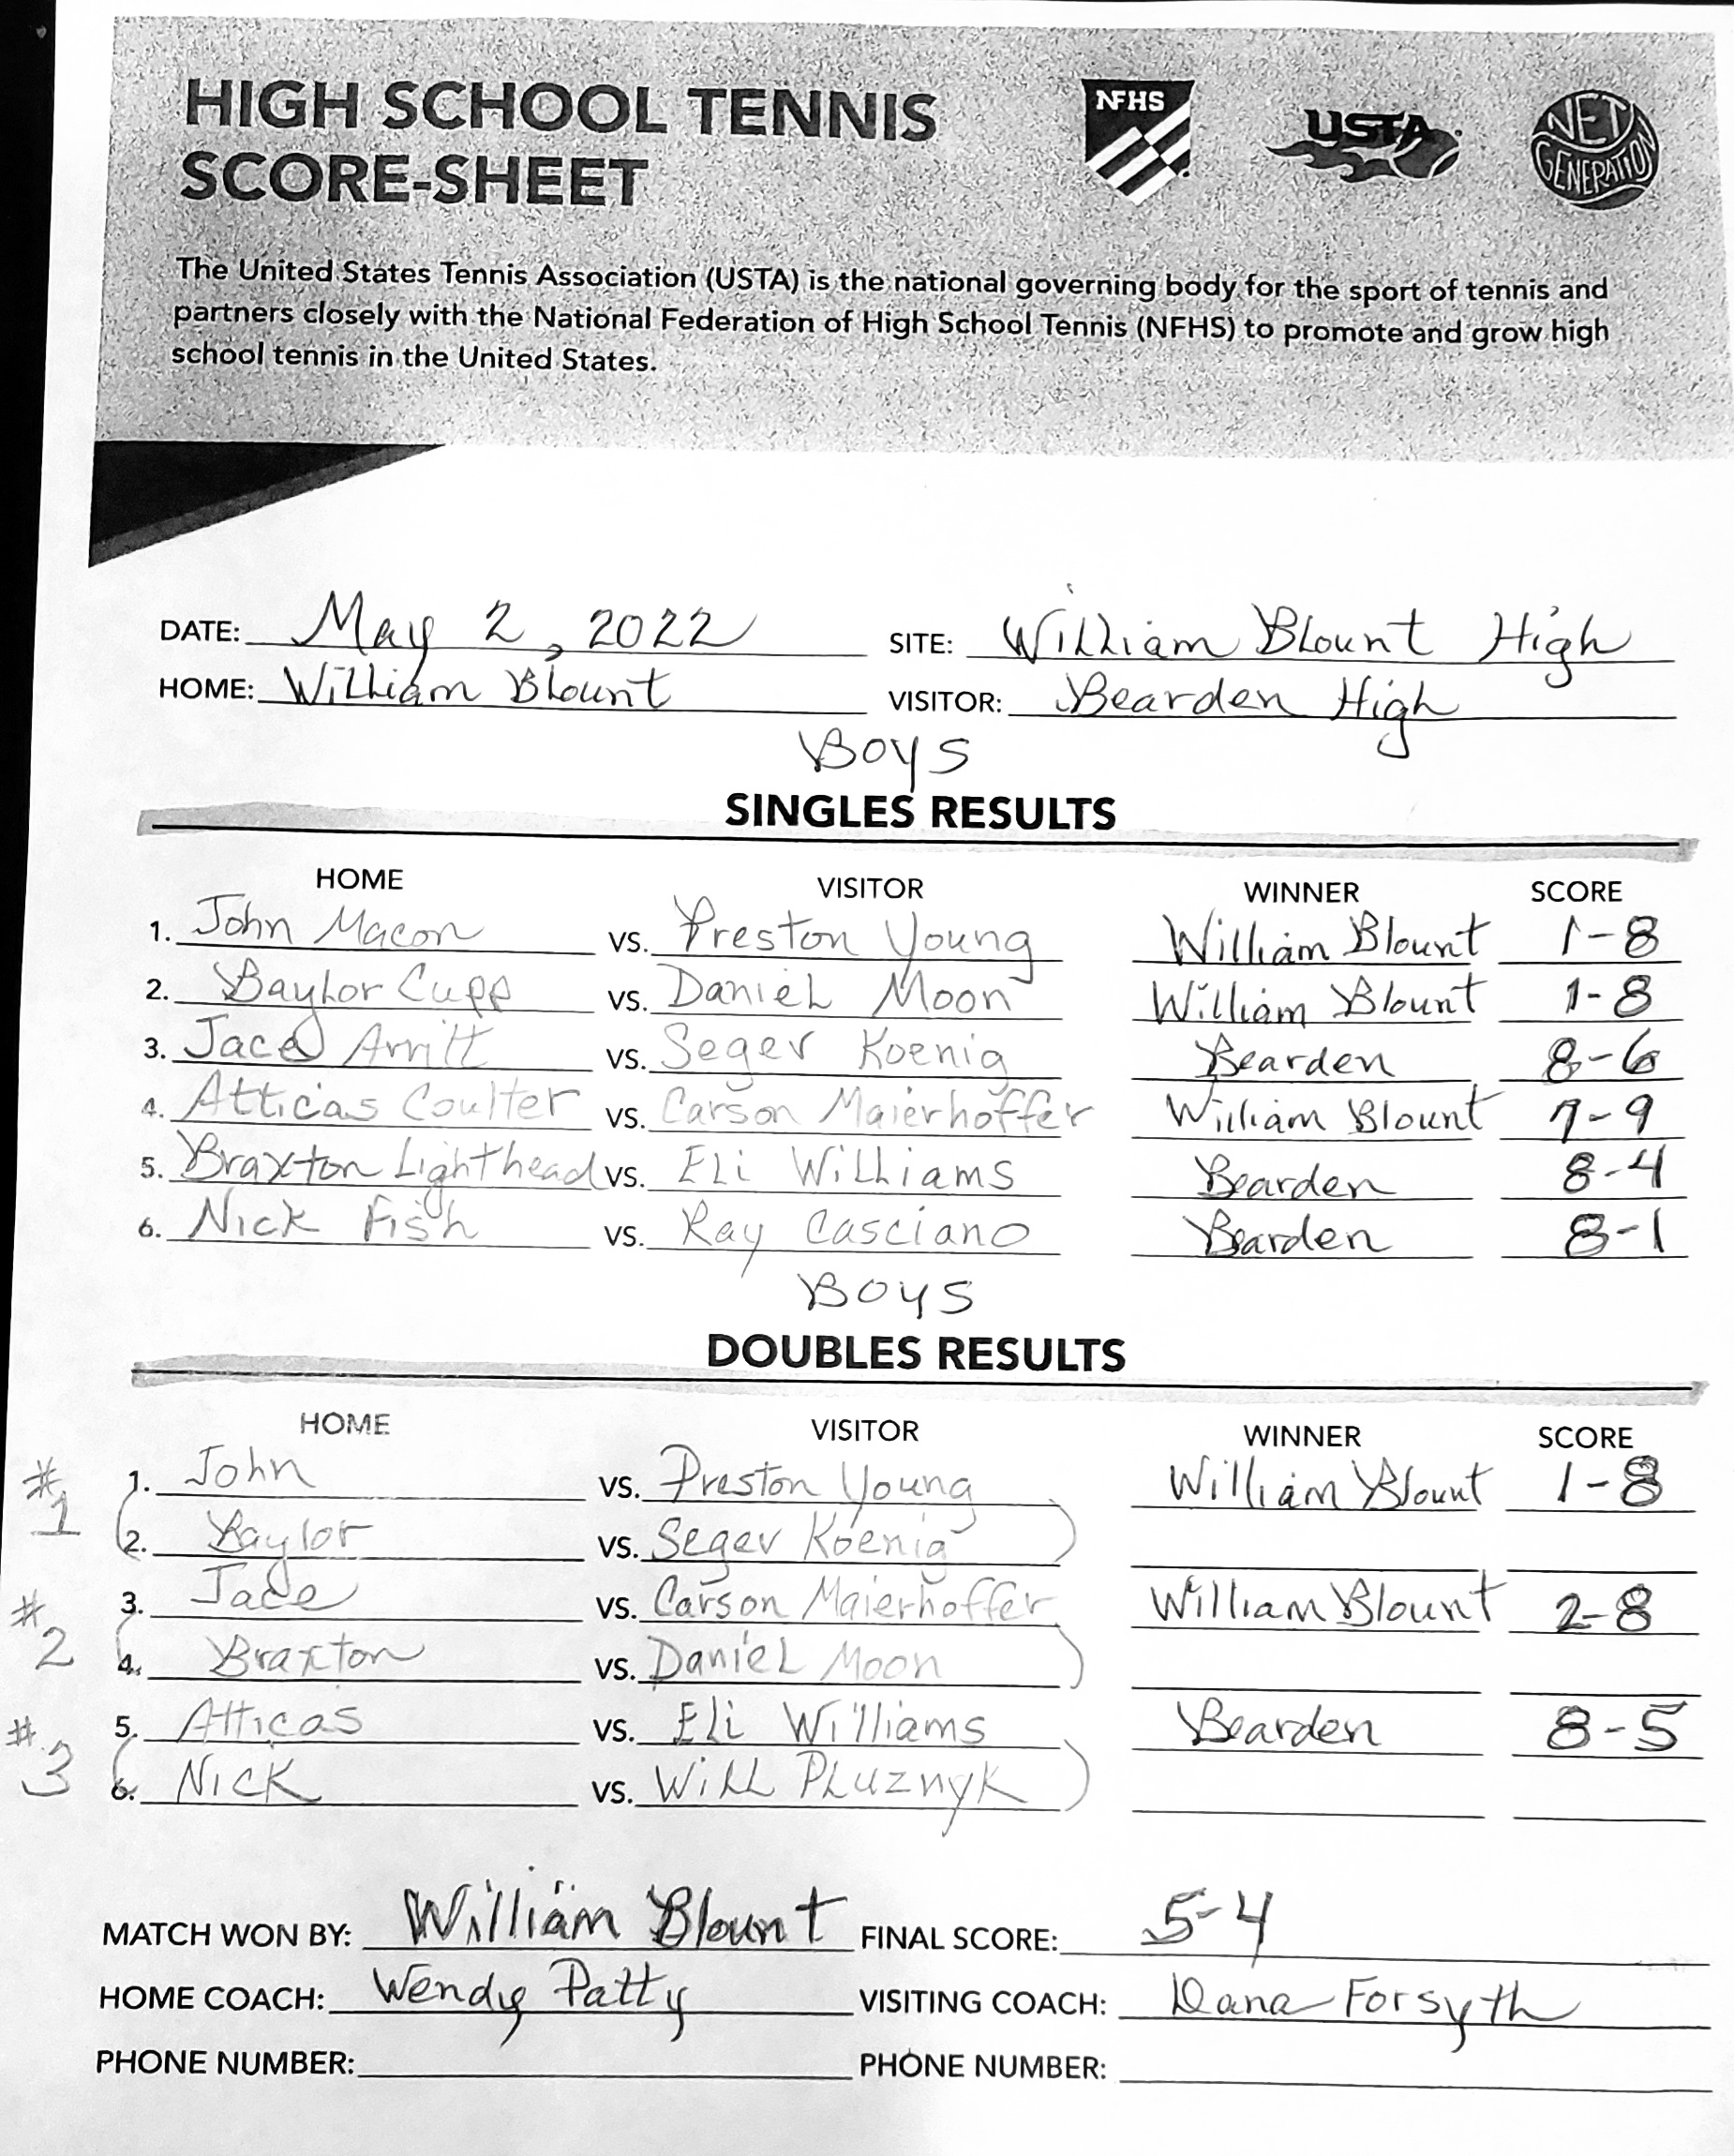 HIGH SCHOOL TENNIS
SCORE-SHEET
NFHS
USTA
NET GENERATION
The United States Tennis Association (USTA) is the national governing body for the sport of tennis and
partners closely with the National Federation of High School Tennis (NFHS) to promote and grow high
school tennis in the United States.
DATE: May 2, 2022 SITE: William Blount High
HOME: William Blount VISITOR: Bearden High
Boys
SINGLES RESULTS
HOME VISITOR WINNER SCORE
1. John Macon VS. Preston Young William Blount 1-8
2. Baylor Cupp VS. Daniel Moon William Blount 1-8
3. Jace Arritt VS. Segev Koenig Bearden 8-6
4. Atticas Coulter VS. Carson Maierhoffer William Blount 7-9
5. Braxton Lighthead VS. Eli Williams Bearden 8-4
6. Nick Fish VS. Ray Casciano Bearden 8-1
Boys
DOUBLES RESULTS
HOME VISITOR WINNER SCORE
#1 1. John VS. Preston Young William Blount 1-8
2. Baylor VS. Segev Koenig
#2 3. Jace VS. Carson Maierhoffer William Blount 2-8
4. Braxton VS. Daniel Moon
#3 5. Atticas VS. Eli Williams Bearden 8-5
6. Nick VS. Will Pluznyk
MATCH WON BY: William Blount FINAL SCORE: 5-4
HOME COACH: Wendy Patty VISITING COACH: Dana Forsyth
PHONE NUMBER: PHONE NUMBER: